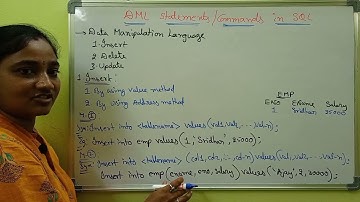 DML Statements/Commands in SQL
→ Data Manipulation Language
1. Insert
2. Delete
3. Update
1. Insert:
1. By using value method
2. By using Address method
EMP
ENO Ename Salary
1 Sridhar 25000
M-①
Syn: Insert into <tablename> values(val1, val2, --- val-n);
Eg: Insert into emp values(1, 'Sridhar', 25000);
M-②
Syn: Insert into <tablename> (col1, col2, --, col-n) values(val1, val2, --- val-n);
Eg: Insert into emp(ename, eno, salary) values('Ajay', 2, 30000);